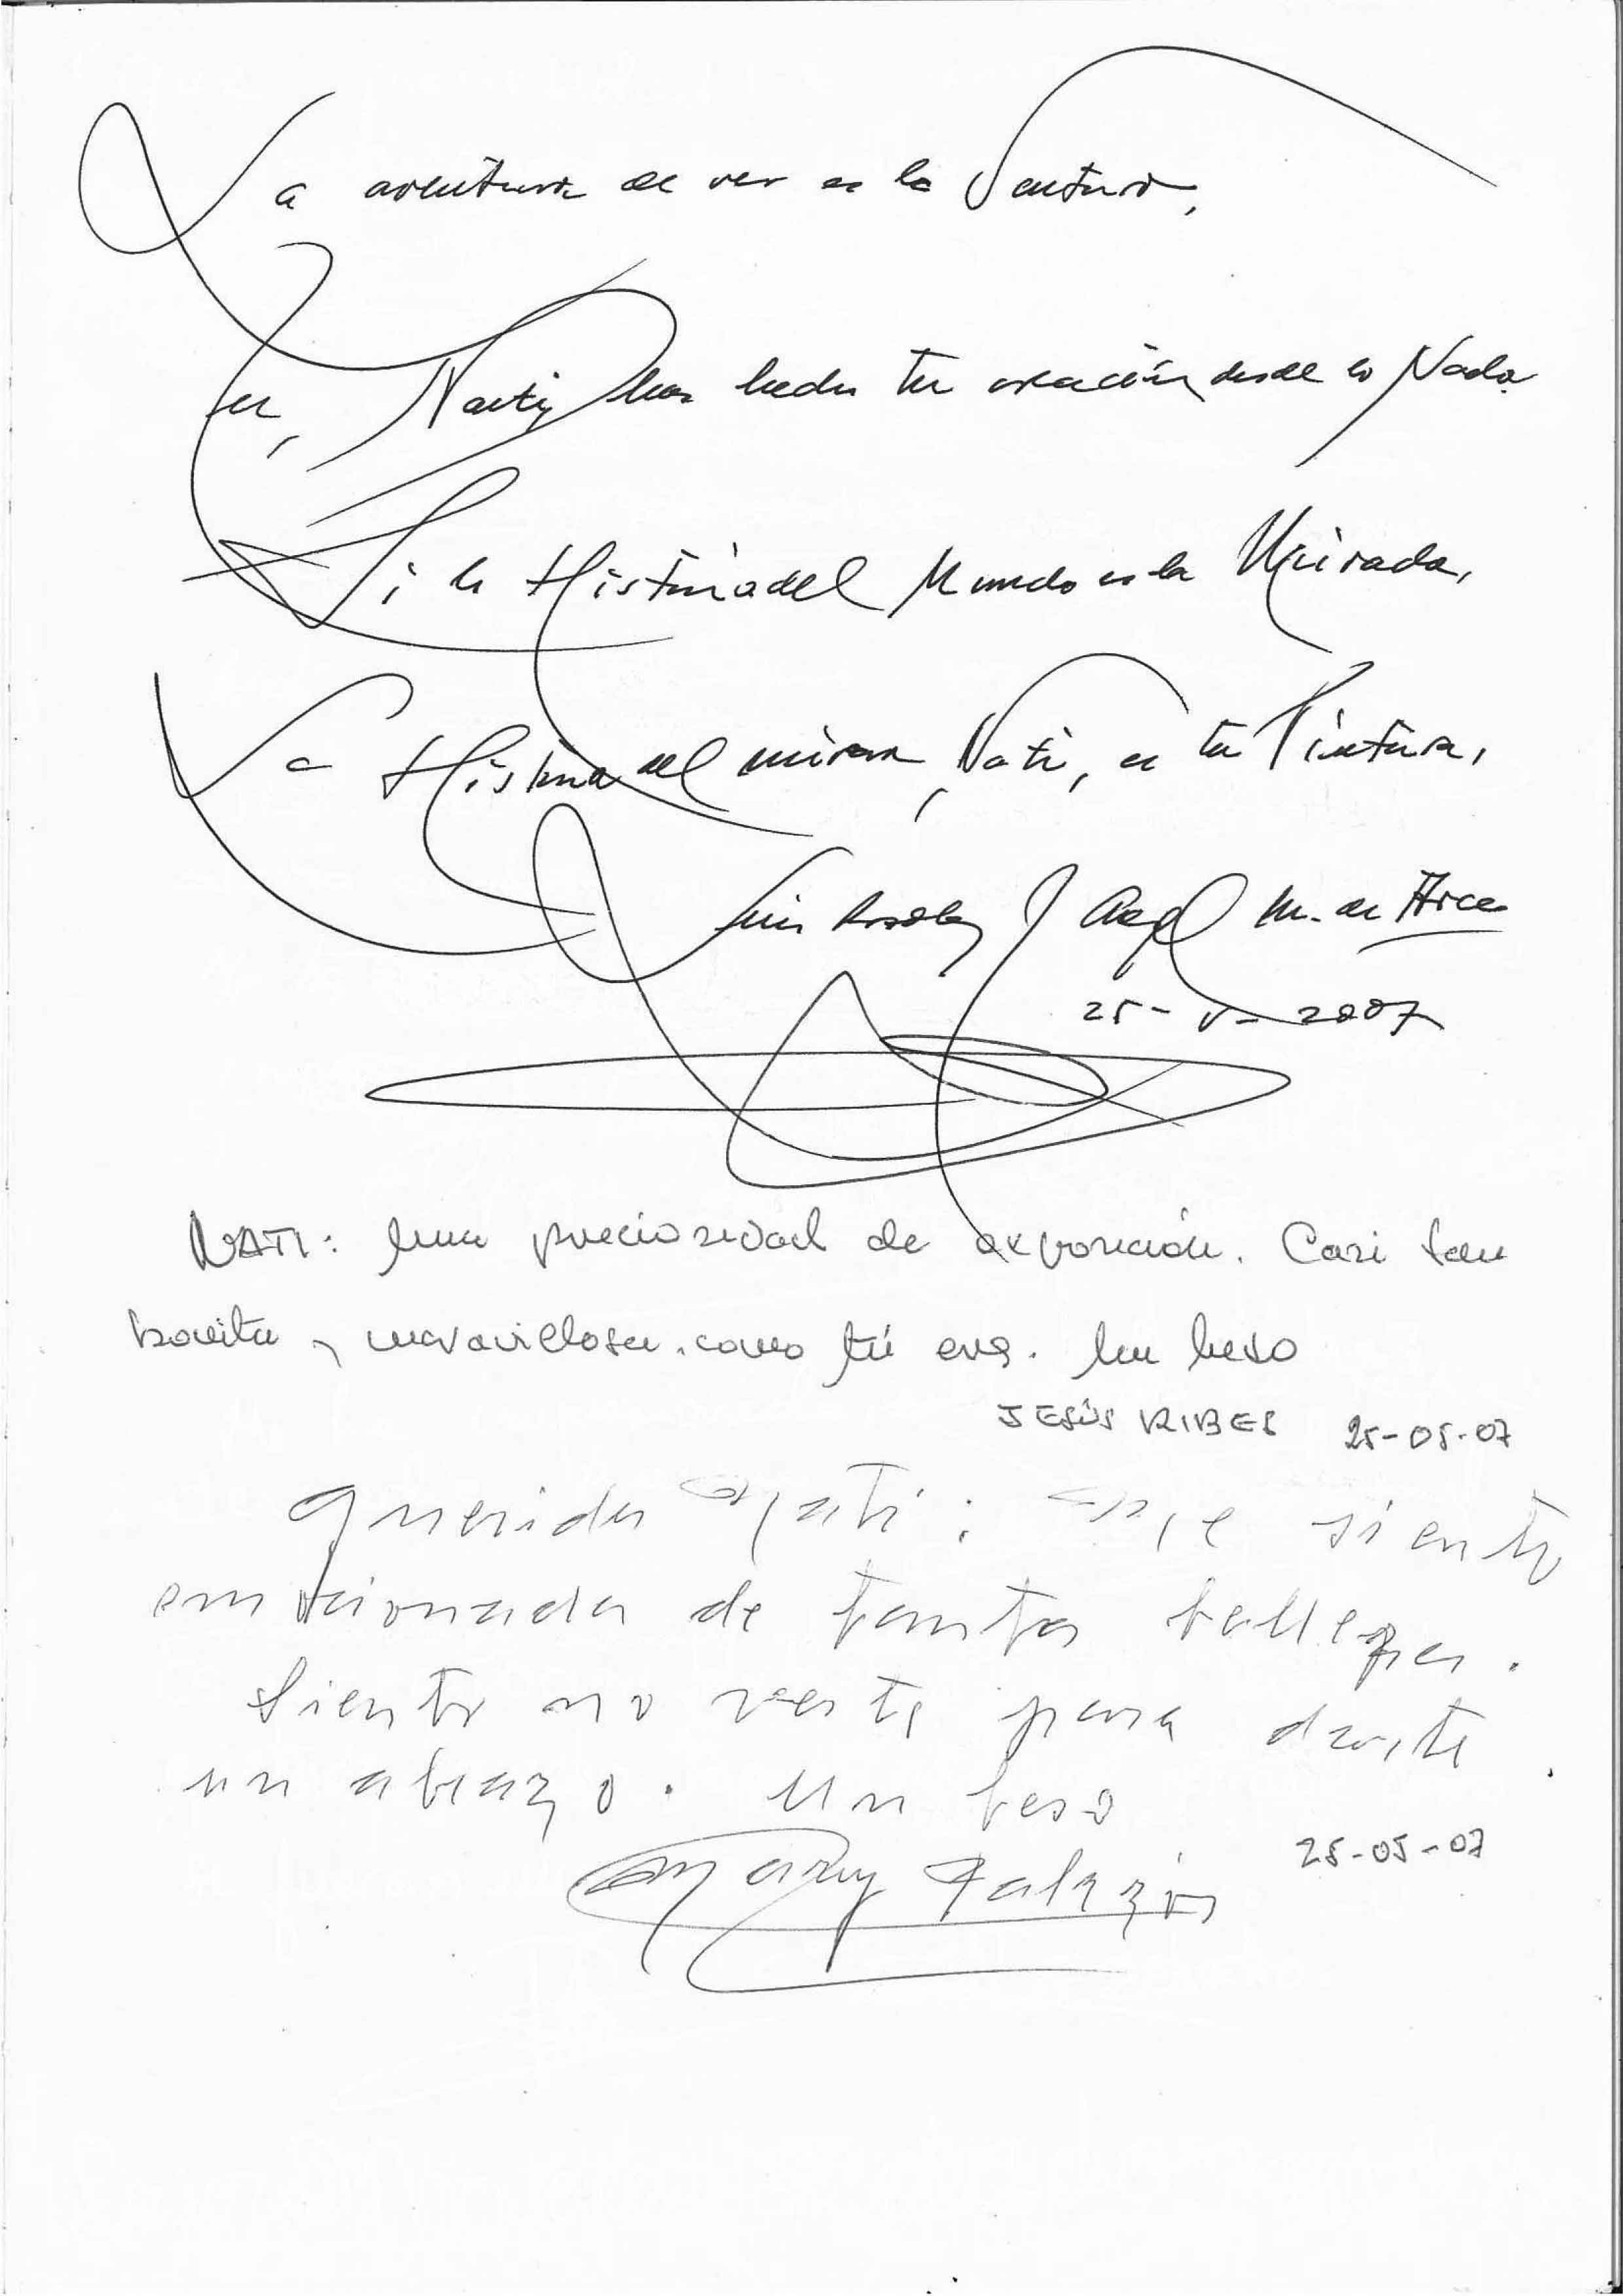 La aventura de ver es la Ventura,
Tu, Nati, has hecho tu creación desde la Nada.
Si la Historia del Mundo es la Mirada,
La Historia del mirar, Nati, es tu Pintura,
Luis M. de Arce
25-V-2007
NATI: Una preciosidad de exposición. Casi tan
bonita y maravillosa como tú eres. Un beso
JESÚS RIBES 25-05-07
Querida Nati: Me siento
emocionada de tanta belleza.
Siento no verte para darte
un abrazo. Un beso
25-05-07
Mary